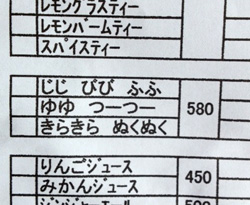 レモングラスティー
レモンバームティー
スパイスティー
じじ びび ふふ
ゆゆ つーつー
580
きらきら ぬくぬく
りんごジュース
450
みかんジュース
ジンジャーエール
500